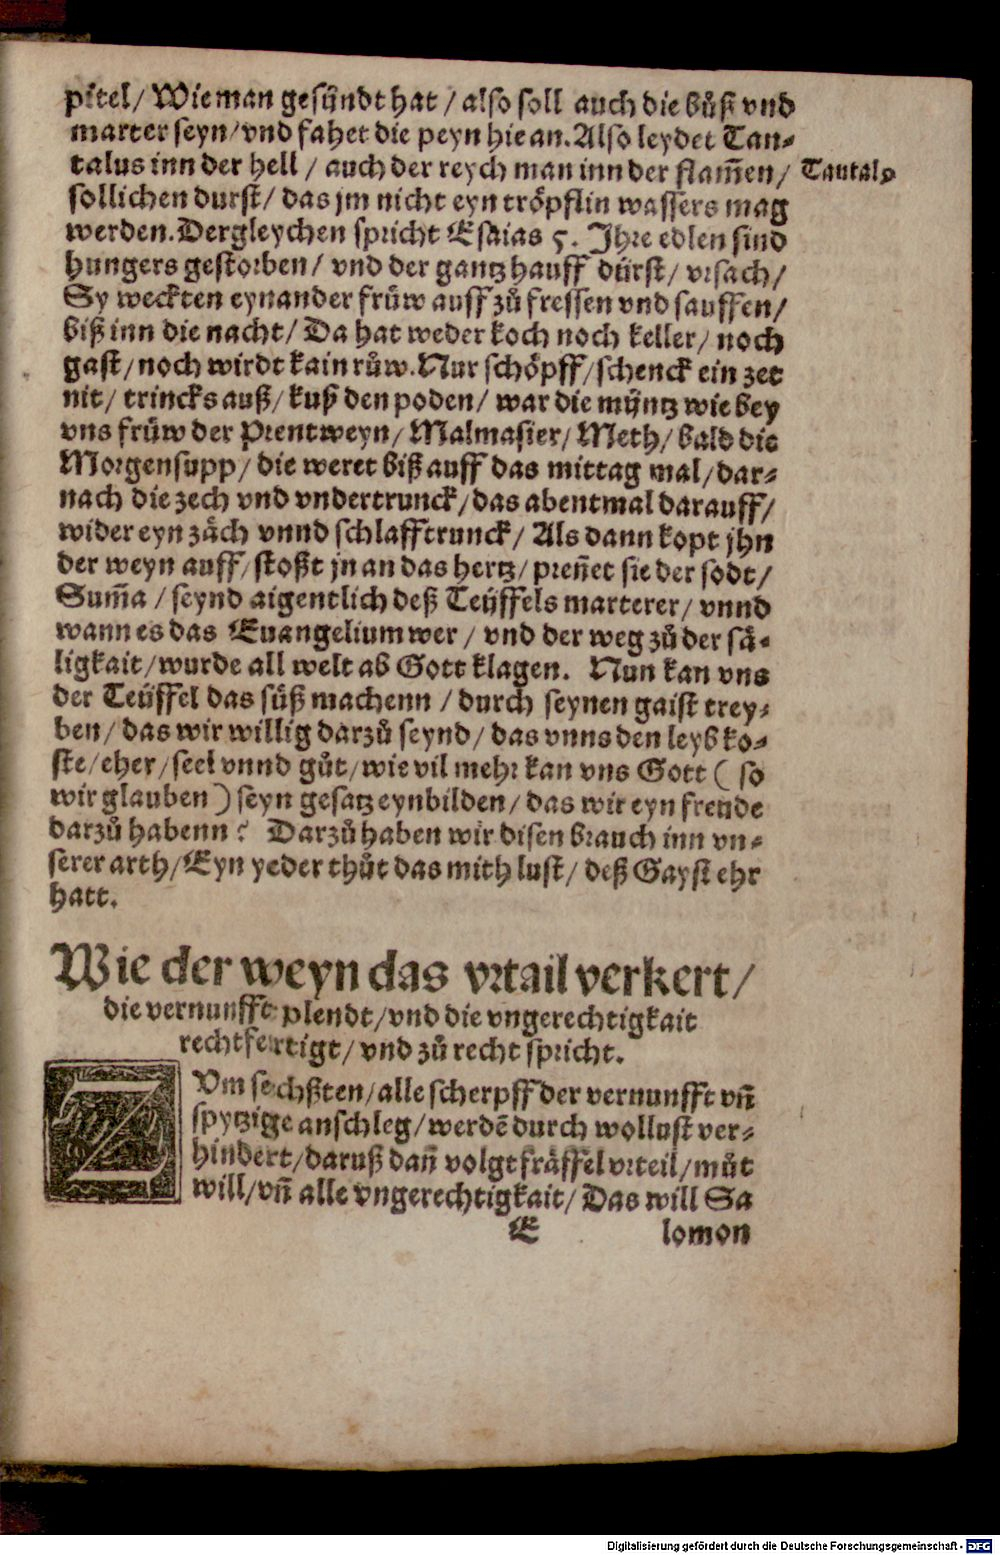 pitel/ Wie man gesündt hat / also soll auch die bůß vnd
marter seyn/ vnd fahet die peyn hie an. Also leydet Tan-
talus inn der hell / auch der reych man inn der flam̃en/
Tantalꝰ
sollichen durst/ das jm nicht eyn tröpflin wassers mag
werden. Dergleychen spricht Esaias 5. Ihre edlen sind
hungers gestorben/ vnd der gantz hauff dürst/ vrsach/
Sy weckten eynander früw auff zů fressen vnd sauffen/
biß inn die nacht/ Da hat weder koch noch keller/ noch
gast/ noch wirdt kain růw. Nur schöpff/ schenck ein zet
nit/ trincks auß/ kuß den poden/ war die müntz wie bey
vns früw der Prentweyn/ Malmasier/ Meth/ bald die
Morgensupp/ die weret biß auff das mittag mal/ dar-
nach die zech vnd vndertrunck/ das abentmal darauff/
wider eyn zäch vnnd schlafftrunck/ Als dann kopt jhn
der weyn auff/ stoßt jn an das hertz/ preñet sie der sodt/
Sum̃a / seynd aigentlich deß Teüffels marterer/ vnnd
wann es das Euangelium wer / vnd der weg zů der sä-
ligkait/ wurde all welt ab Gott klagen. Nun kan vns
der Teüffel das süß machenn / durch seynen gaist trey-
ben/ das wir willig darzů seynd/ das vnns den leyb ko-
ste/ eher/ seel vnnd gůt/ wie vil mehr kan vns Gott ( so
wir glauben ) seyn gesatz eynbilden/ das wir eyn freude
darzů habenn ? Darzů haben wir disen brauch inn vn-
serer arth/ Eyn yeder thůt das mith lust/ deß Gayst ehr
hatt.
Wie der weyn das vrtail verkert/
die vernunfft plendt/ vnd die vngerechtigkait
rechtfertigt/ vnd zů recht spricht.
ZVm sechßten/ alle scherpff der vernunfft vñ
spytzige anschleg/ werdẽ durch wollust ver-
hindert/ daruß dañ volgt fräffel vrteil/ můt
will/ vñ alle vngerechtigkait/ Das will Sa
E lomon
Digitalisierung gefördert durch die Deutsche Forschungsgemeinschaft - DFG